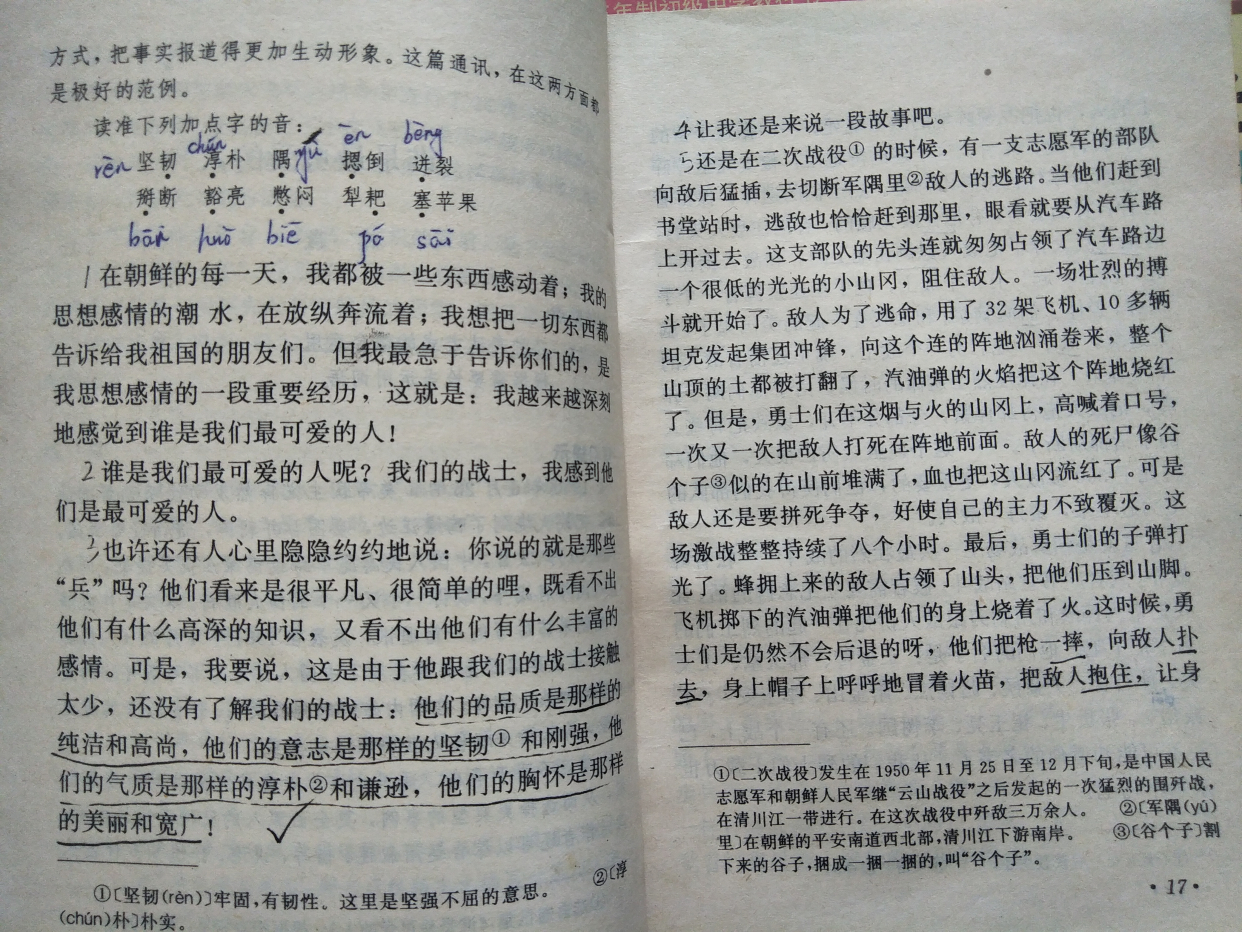 方式，把事实报道得更加生动形象。这篇通讯，在这两方面都
是极好的范例。
读准下列加点字的音：
chún èn bēng
rèn 坚韧 淳朴 隅 yú 摁倒 迸裂
掰断 豁亮 憋闷 犁耙 塞苹果
bāi huò biē pá sāi
1 在朝鲜的每一天，我都被一些东西感动着；我的
思想感情的潮 水，在放纵奔流着；我想把一切东西都
告诉给我祖国的朋友们。但我最急于告诉你们的，是
我思想感情的一段重要经历，这就是：我越来越深刻
地感觉到谁是我们最可爱的人！
2 谁是我们最可爱的人呢？我们的战士，我感到他
们是最可爱的人。
3 也许还有人心里隐隐约约地说：你说的就是那些
“兵”吗？他们看来是很平凡、很简单的哩，既看不出
他们有什么高深的知识，又看不出他们有什么丰富的
感情。可是，我要说，这是由于他跟我们的战士接触
太少，还没有了解我们的战士：他们的品质是那样的
纯洁和高尚，他们的意志是那样的坚韧①和刚强，他
们的气质是那样的淳朴②和谦逊，他们的胸怀是那样
的美丽和宽广！
①〔坚韧(rèn)〕牢固，有韧性。这里是坚强不屈的意思。 ②〔淳
(chún)朴〕朴实。
4 让我还是来说一段故事吧。
5 还是在二次战役①的时候，有一支志愿军的部队
向敌后猛插，去切断军隅里②敌人的逃路。当他们赶到
书堂站时，逃敌也恰恰赶到那里，眼看就要从汽车路
上开过去。这支部队的先头连就匆匆占领了汽车路边
一个很低的光光的小山冈，阻住敌人。一场壮烈的搏
斗就开始了。敌人为了逃命，用了 32 架飞机、10 多辆
坦克发起集团冲锋，向这个连的阵地汹涌卷来，整个
山顶的土都被打翻了，汽油弹的火焰把这个阵地烧红
了。但是，勇士们在这烟与火的山冈上，高喊着口号，
一次又一次把敌人打死在阵地前面。敌人的死尸像谷
个子③似的在山前堆满了，血也把这山冈流红了。可是
敌人还是要拼死争夺，好使自己的主力不致覆灭。这
场激战整整持续了八个小时。最后，勇士们的子弹打
光了。蜂拥上来的敌人占领了山头，把他们压到山脚。
飞机掷下的汽油弹把他们的身上烧着了火。这时候，勇
士们是仍然不会后退的呀，他们把枪一摔，向敌人扑
去，身上帽子上呼呼地冒着火苗，把敌人抱住，让身
①〔二次战役〕发生在 1950 年 11 月 25 日至 12 月下旬，是中国人民
志愿军和朝鲜人民军继“云山战役”之后发起的一次猛烈的围歼战，
在清川江一带进行。在这次战役中歼敌三万余人。 ②〔军隅(yú)
里〕在朝鲜的平安南道西北部，清川江下游南岸。 ③〔谷个子〕割
下来的谷子，捆成一捆一捆的，叫“谷个子”。
·17·